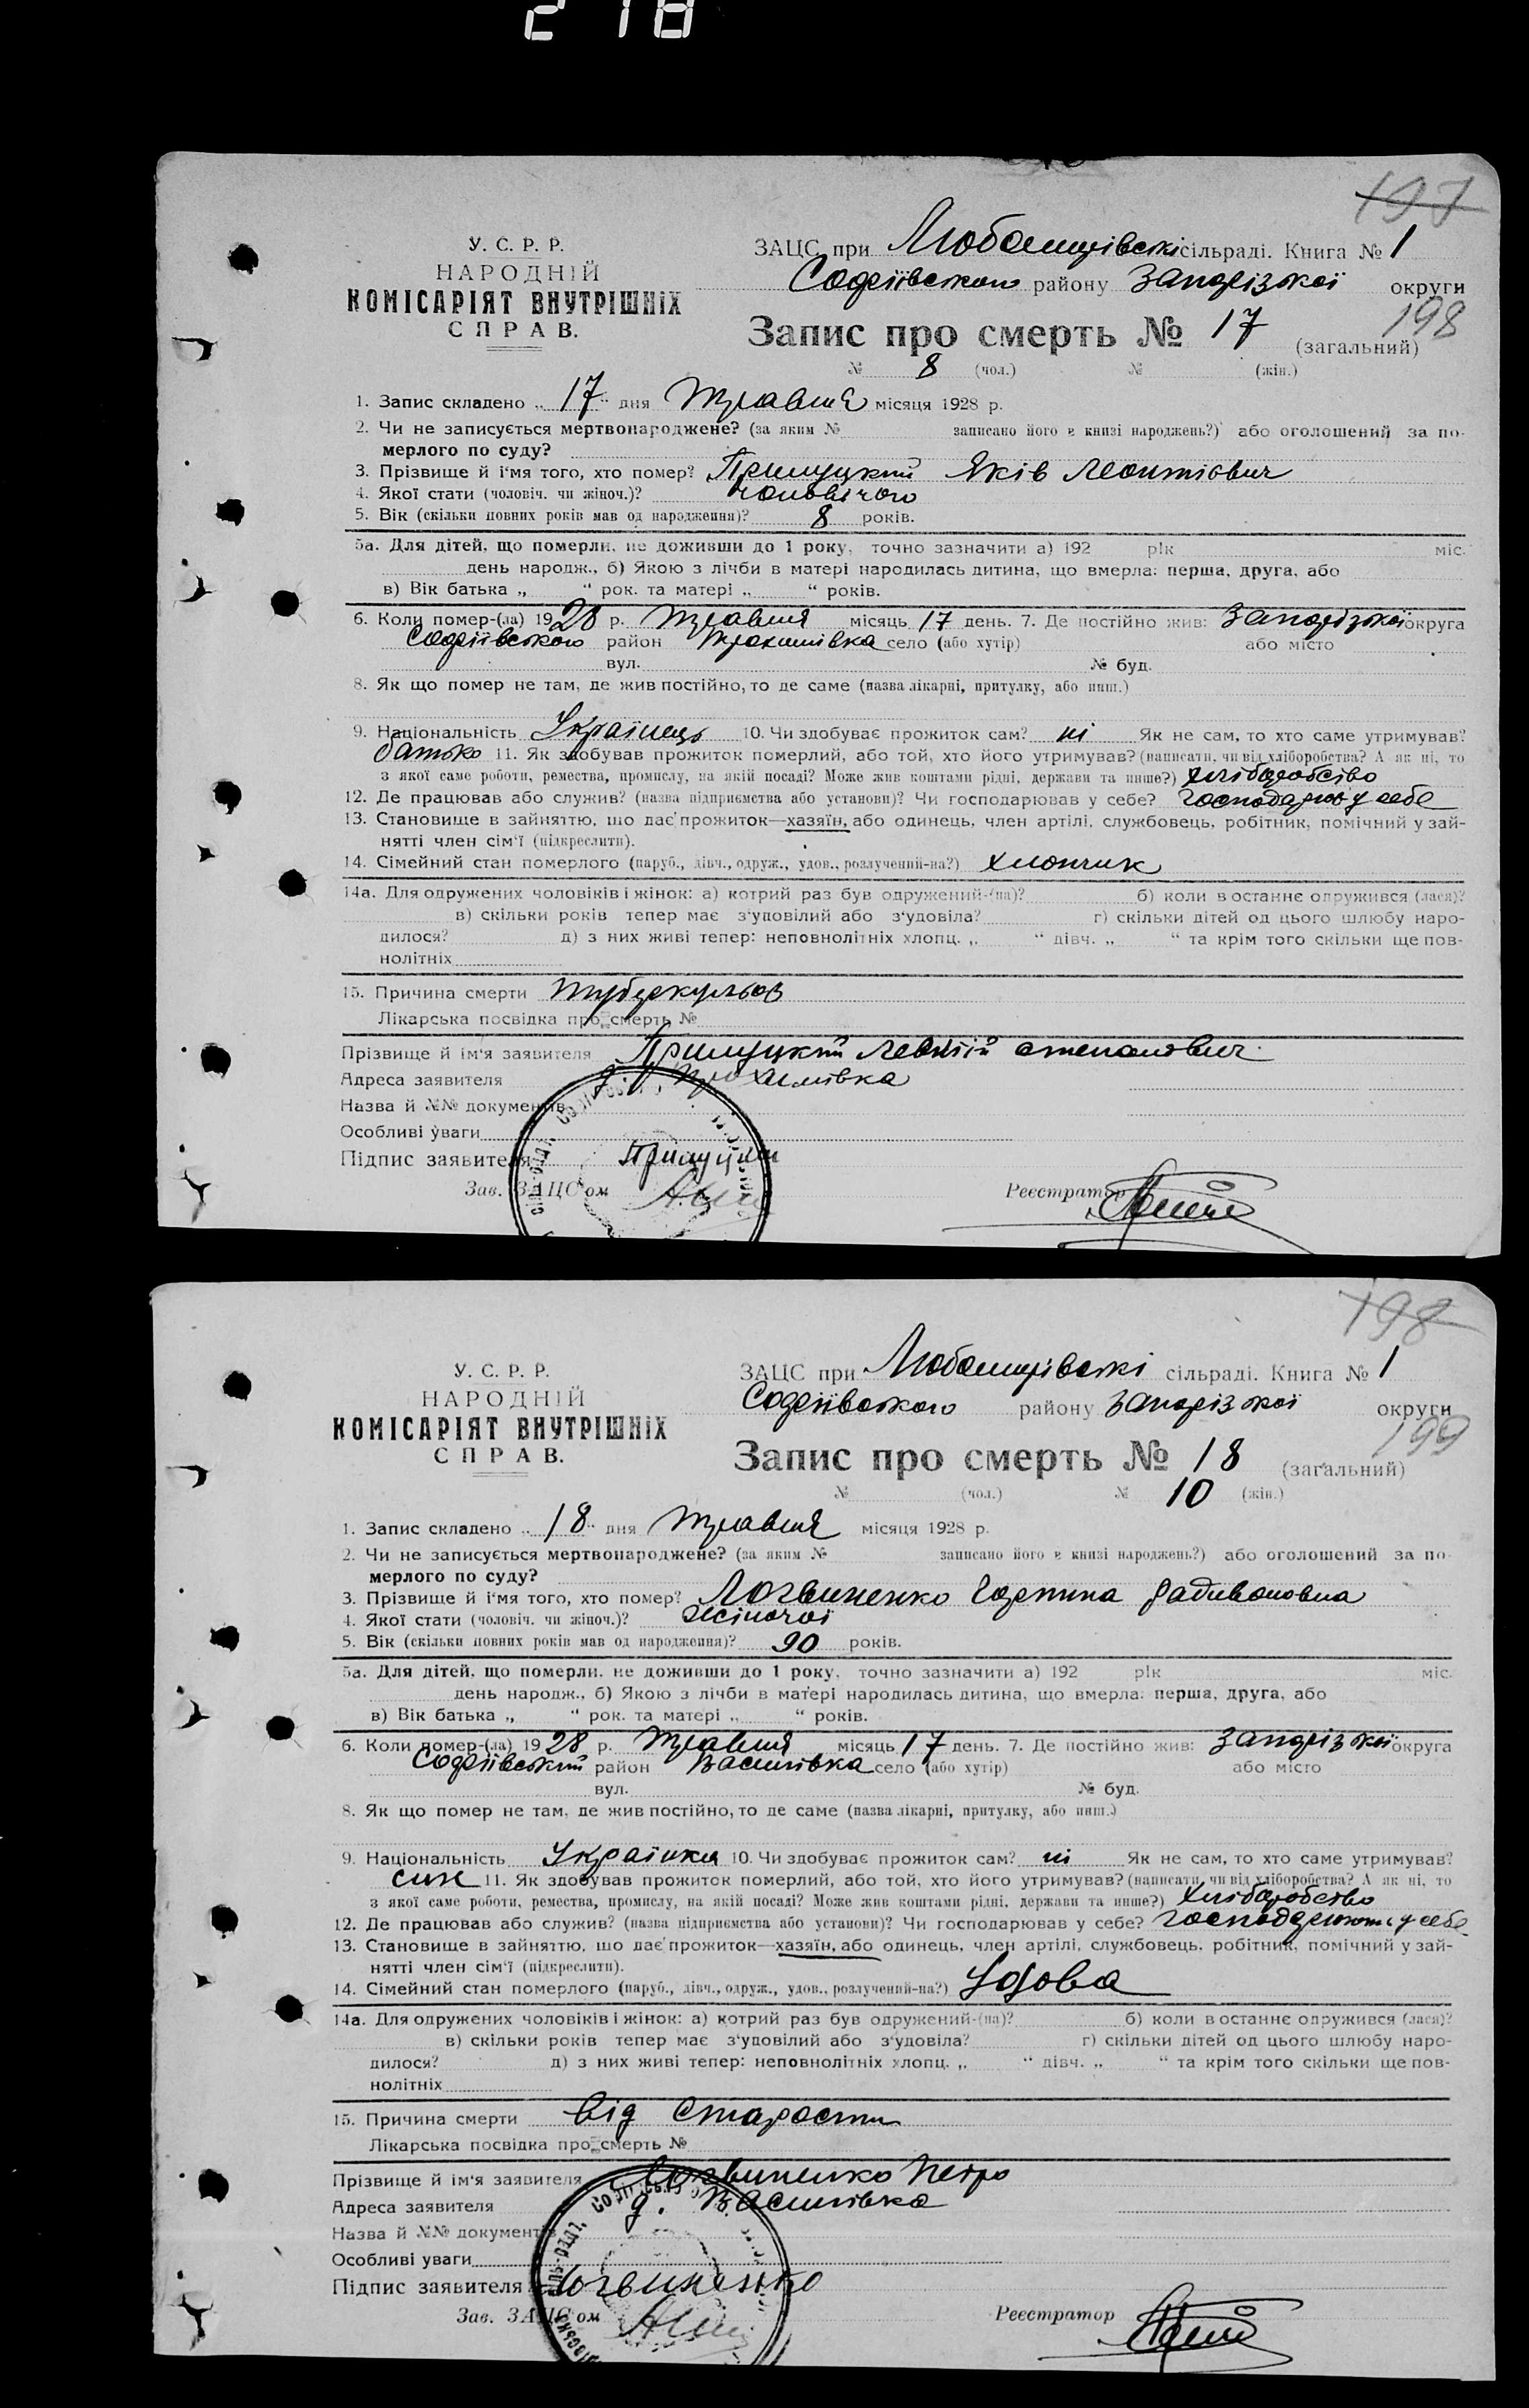 218
197
У. С. Р. Р.
НАРОДНІЙ
КОМІСАРІЯТ ВНУТРІШНІХ
СПРАВ.
ЗАЦС при Любомирівскі сільраді. Книга № 1
Софіївського району Запорізької округи
198
Запис про смерть № 17 (загальний)
№ 8 (чол.) № (жін.)
1. Запис складено „ 17 “ дня Травня місяця 1928 р.
2. Чи не записується мертвонароджене? (за яким № записано його в книзі народжень?) або оголошений за по-
мерлого по суду?
3. Прізвище й і'мя того, хто помер? Прилуцкий Яків Леонтієвич
4. Якої стати (чоловіч. чи жіноч.)? чоловічого
5. Вік (скільки повних років мав од народження)? 8 років.
5а. Для дітей, що померли, не доживши до 1 року, точно зазначити а) 192 рік міс.
день народж., б) Якою з лічби в матері народилась дитина, що вмерла: перша, друга, або
в) Вік батька „ “ рок. та матері „ “ років.
6. Коли помер-(ла) 1928 р. Травня місяць 17 день. 7. Де постійно жив: Запорізької округа
Софіївського район Трохимівка село (або хутір) або місто
вул. № буд.
8. Як що помер не там, де жив постійно, то де саме (назва лікарні, притулку, або инш.)
9. Національність Українець 10. Чи здобуває прожиток сам? ні Як не сам, то хто саме утримував?
батько 11. Як здобував прожиток померлий, або той, хто його утримував? (написати, чи від хліборобства? А як ні, то
з якої саме роботи, ремества, промислу, на якій посаді? Може жив коштами рідні, держави та инше?) хліборобство
12. Де працював або служив? (назва підприємства або установи)? Чи господарював у себе? господарював у себе
13. Становище в зайняттю, що дає прожиток—хазяїн, або одинець, член артілі, службовець, робітник, помічний у зай-
нятті член сім'ї (підкреслити).
14. Сімейний стан померлого (паруб., дівч., одруж., удов., розлучений-на?) хлопчик
14а. Для одружених чоловіків і жінок: а) котрий раз був одружений-(на)? б) коли в останнє одружився (лася)?
в) скільки років тепер має з'удовілий або з'удовіла? г) скільки дітей од цього шлюбу наро-
дилося? д) з них живі тепер: неповнолітніх хлопц. „ “ дівч. „ “ та крім того скільки ще пов-
нолітніх
15. Причина смерти туберкульоз
Лікарська посвідка про смерть №
Прізвище й ім'я заявителя Прилуцкий Левтій степанович
Адреса заявителя д. Трохимівка
Назва й №№ документів
Особливі уваги
Підпис заявителя Прилуцкий
Зав. ЗАЦС'ом Реєстратор
198
У. С. Р. Р.
НАРОДНІЙ
КОМІСАРІЯТ ВНУТРІШНІХ
СПРАВ.
ЗАЦС при Любомирівскі сільраді. Книга № 1
Софіївського району Запорізької округи
199
Запис про смерть № 18 (загальний)
№ (чол.) № 10 (жін.)
1. Запис складено „ 18 “ дня Травня місяця 1928 р.
2. Чи не записується мертвонароджене? (за яким № записано його в книзі народжень?) або оголошений за по-
мерлого по суду?
3. Прізвище й і'мя того, хто помер? Логвиненко Горпина Радивоновна
4. Якої стати (чоловіч. чи жіноч.)? жіночої
5. Вік (скільки повних років мав од народження)? 90 років.
5а. Для дітей, що померли, не доживши до 1 року, точно зазначити а) 192 рік міс.
день народж., б) Якою з лічби в матері народилась дитина, що вмерла: перша, друга, або
в) Вік батька „ “ рок. та матері „ “ років.
6. Коли помер-(ла) 1928 р. Травня місяць 17 день. 7. Де постійно жив: Запорізької округа
Софіївський район Василівка село (або хутір) або місто
вул. № буд.
8. Як що помер не там, де жив постійно, то де саме (назва лікарні, притулку, або инш.)
9. Національність Українка 10. Чи здобуває прожиток сам? ні Як не сам, то хто саме утримував?
син 11. Як здобував прожиток померлий, або той, хто його утримував? (написати, чи від хліборобства? А як ні, то
з якої саме роботи, ремества, промислу, на якій посаді? Може жив коштами рідні, держави та инше?) хліборобство
12. Де працював або служив? (назва підприємства або установи)? Чи господарював у себе? у себе
13. Становище в зайняттю, що дає прожиток—хазяїн, або одинець, член артілі, службовець, робітник, помічний у зай-
нятті член сім'ї (підкреслити).
14. Сімейний стан померлого (паруб., дівч., одруж., удов., розлучений-на?) Удова
14а. Для одружених чоловіків і жінок: а) котрий раз був одружений-(на)? б) коли в останнє одружився (лася)?
в) скільки років тепер має з'удовілий або з'удовіла? г) скільки дітей од цього шлюбу наро-
дилося? д) з них живі тепер: неповнолітніх хлопц. „ “ дівч. „ “ та крім того скільки ще пов-
нолітніх
15. Причина смерти від старости
Лікарська посвідка про смерть №
Прізвище й ім'я заявителя Логвиненко Петро
Адреса заявителя д. Василівка
Назва й №№ документів
Особливі уваги
Підпис заявителя Логвиненко
Зав. ЗАЦС'ом Реєстратор